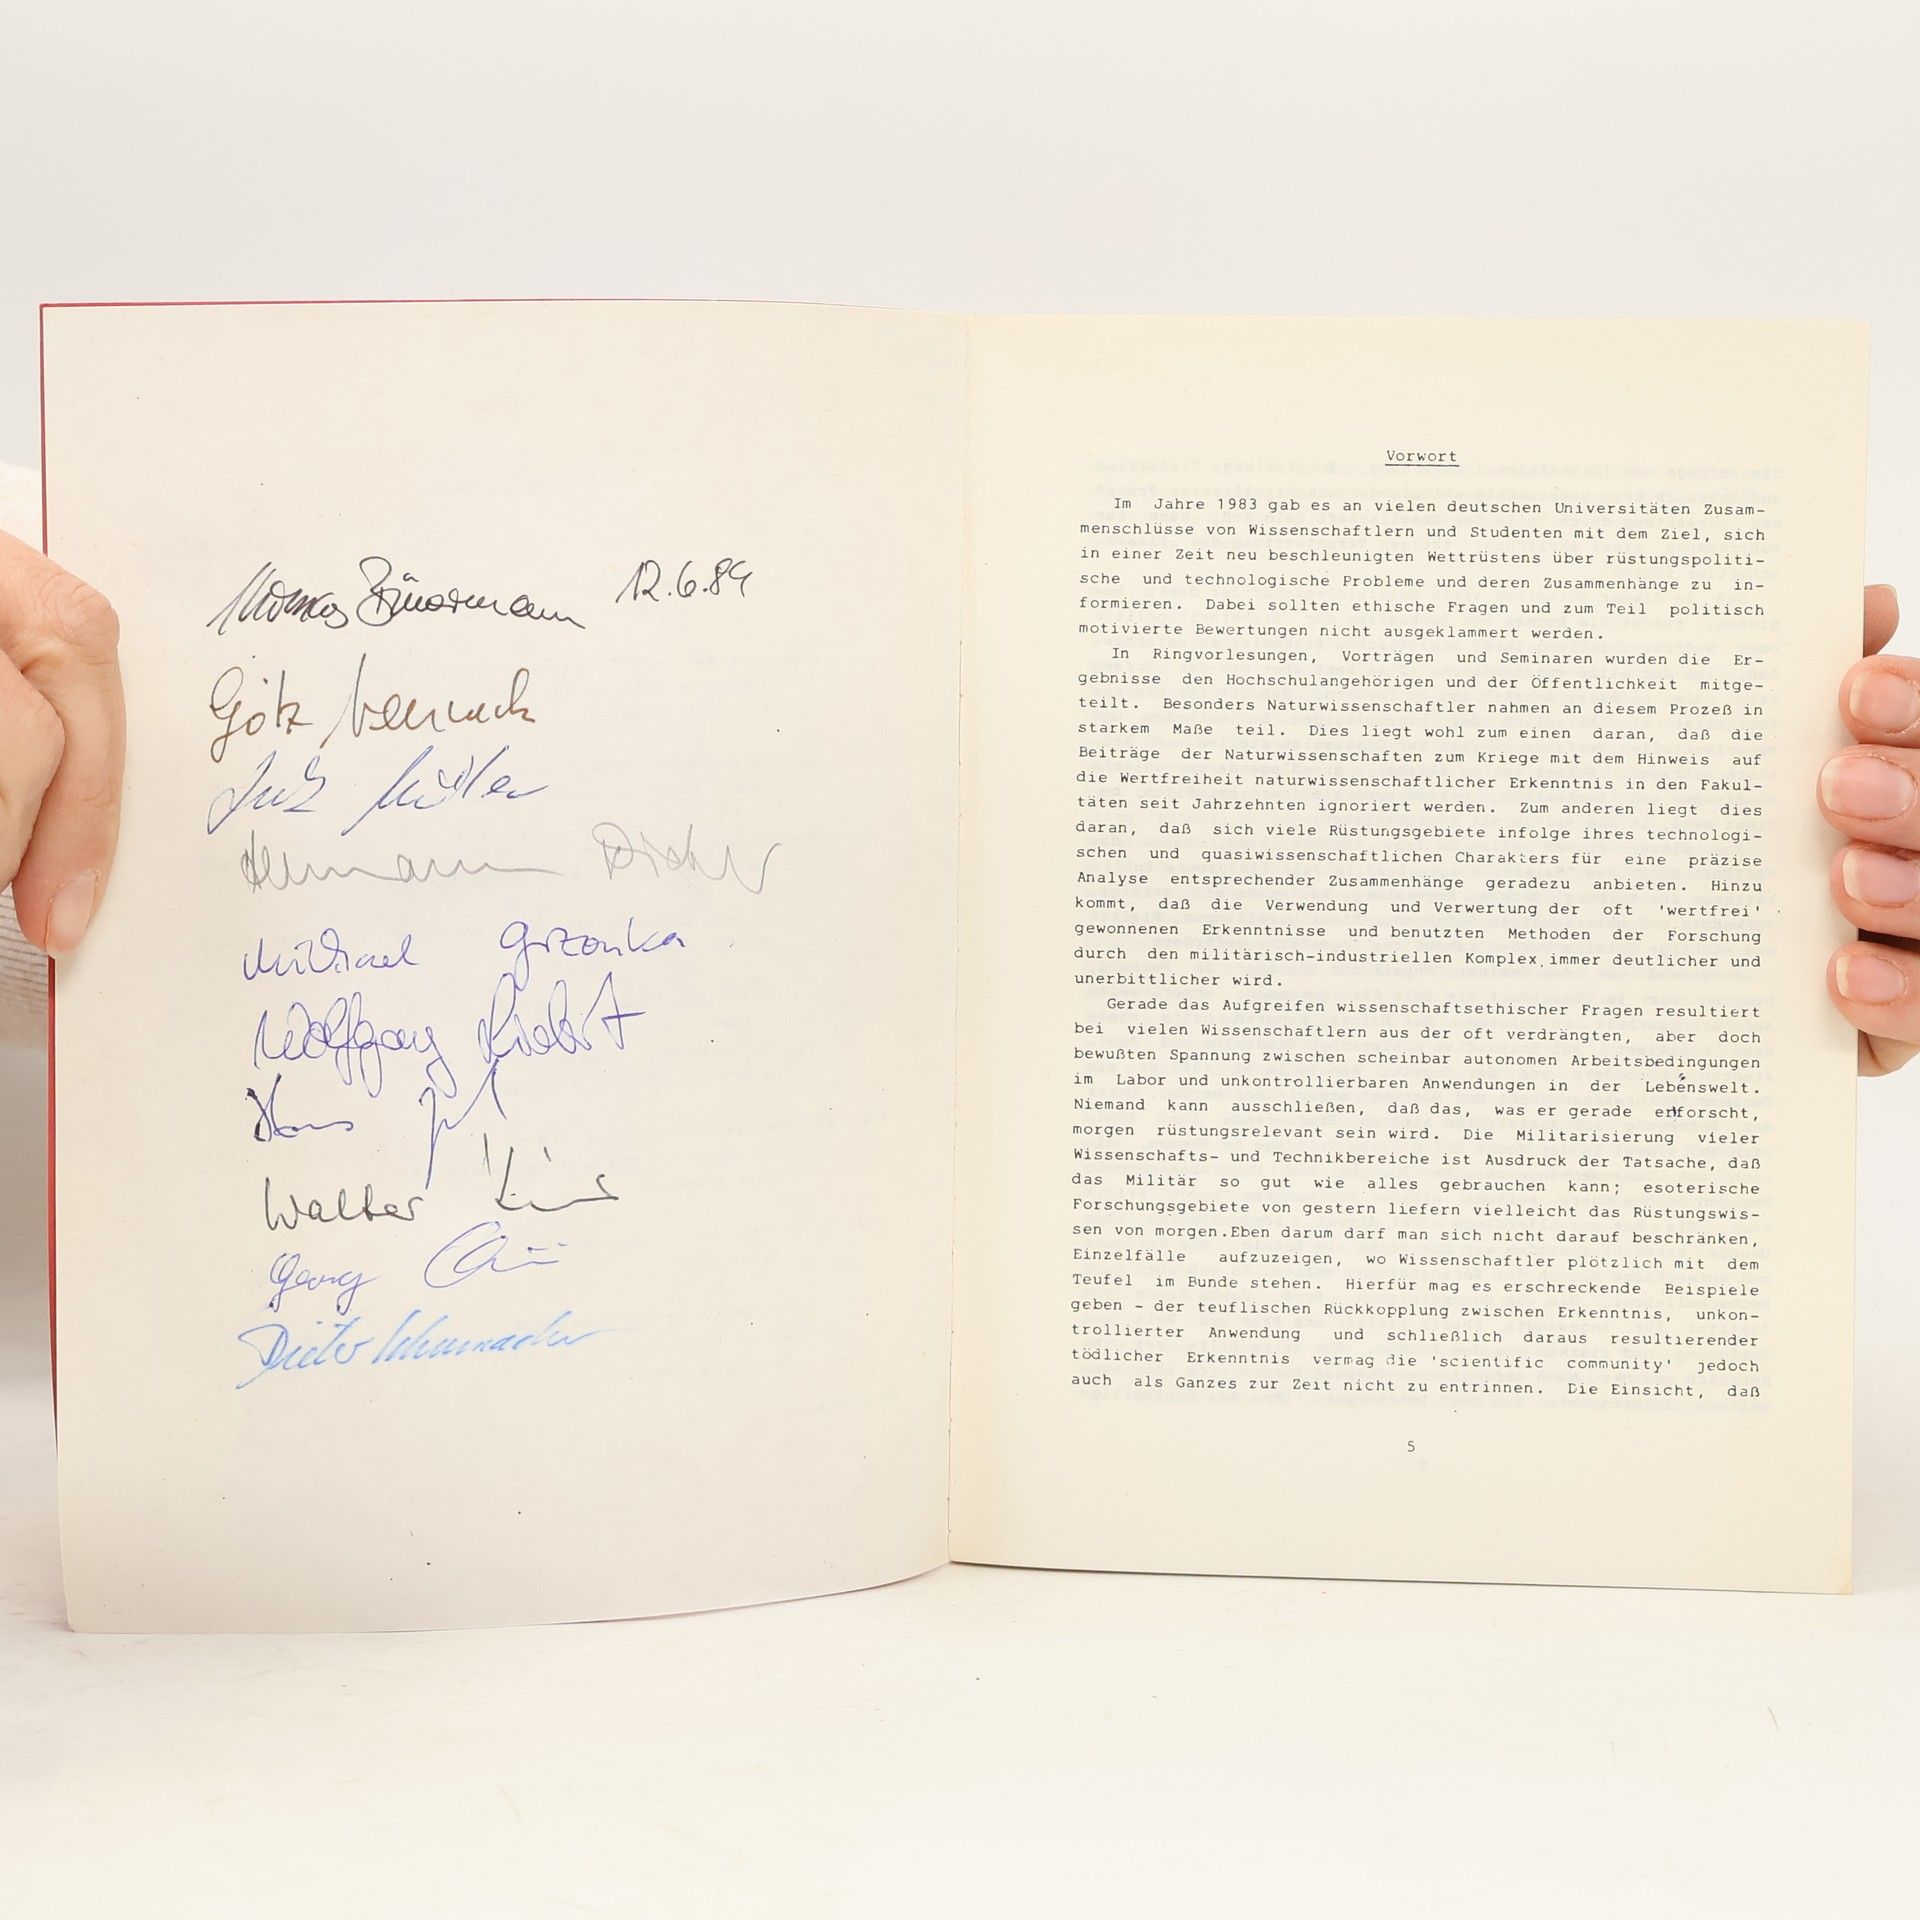 Thomas Bührmann 12.6.84
Götz Neuneck
Lutz Müller
Hermann
Michael Grzonka
Wolfgang Liebert
Hans
Walter
Georg
Dieter Schumacher
Vorwort
Im Jahre 1983 gab es an vielen deutschen Universitäten Zusam-
menschlüsse von Wissenschaftlern und Studenten mit dem Ziel, sich
in einer Zeit neu beschleunigten Wettrüstens über rüstungspoliti-
sche und technologische Probleme und deren Zusammenhänge zu in-
formieren. Dabei sollten ethische Fragen und zum Teil politisch
motivierte Bewertungen nicht ausgeklammert werden.
In Ringvorlesungen, Vorträgen und Seminaren wurden die Er-
gebnisse den Hochschulangehörigen und der Öffentlichkeit mitge-
teilt. Besonders Naturwissenschaftler nahmen an diesem Prozeß in
starkem Maße teil. Dies liegt wohl zum einen daran, daß die
Beiträge der Naturwissenschaften zum Kriege mit dem Hinweis auf
die Wertfreiheit naturwissenschaftlicher Erkenntnis in den Fakul-
täten seit Jahrzehnten ignoriert werden. Zum anderen liegt dies
daran, daß sich viele Rüstungsgebiete infolge ihres technologi-
schen und quasiwissenschaftlichen Charakters für eine präzise
Analyse entsprechender Zusammenhänge geradezu anbieten. Hinzu
kommt, daß die Verwendung und Verwertung der oft 'wertfrei'
gewonnenen Erkenntnisse und benutzten Methoden der Forschung
durch den militärisch-industriellen Komplex immer deutlicher und
unerbittlicher wird.
Gerade das Aufgreifen wissenschaftsethischer Fragen resultiert
bei vielen Wissenschaftlern aus der oft verdrängten, aber doch
bewußten Spannung zwischen scheinbar autonomen Arbeitsbedingungen
im Labor und unkontrollierbaren Anwendungen in der Lebenswelt.
Niemand kann ausschließen, daß das, was er gerade erforscht,
morgen rüstungsrelevant sein wird. Die Militarisierung vieler
Wissenschafts- und Technikbereiche ist Ausdruck der Tatsache, daß
das Militär so gut wie alles gebrauchen kann; esoterische
Forschungsgebiete von gestern liefern vielleicht das Rüstungswis-
sen von morgen.Eben darum darf man sich nicht darauf beschränken,
Einzelfälle aufzuzeigen, wo Wissenschaftler plötzlich mit dem
Teufel im Bunde stehen. Hierfür mag es erschreckende Beispiele
geben - der teuflischen Rückkopplung zwischen Erkenntnis, unkon-
trollierter Anwendung und schließlich daraus resultierender
tödlicher Erkenntnis vermag die 'scientific community' jedoch
auch als Ganzes zur Zeit nicht zu entrinnen. Die Einsicht, daß
5